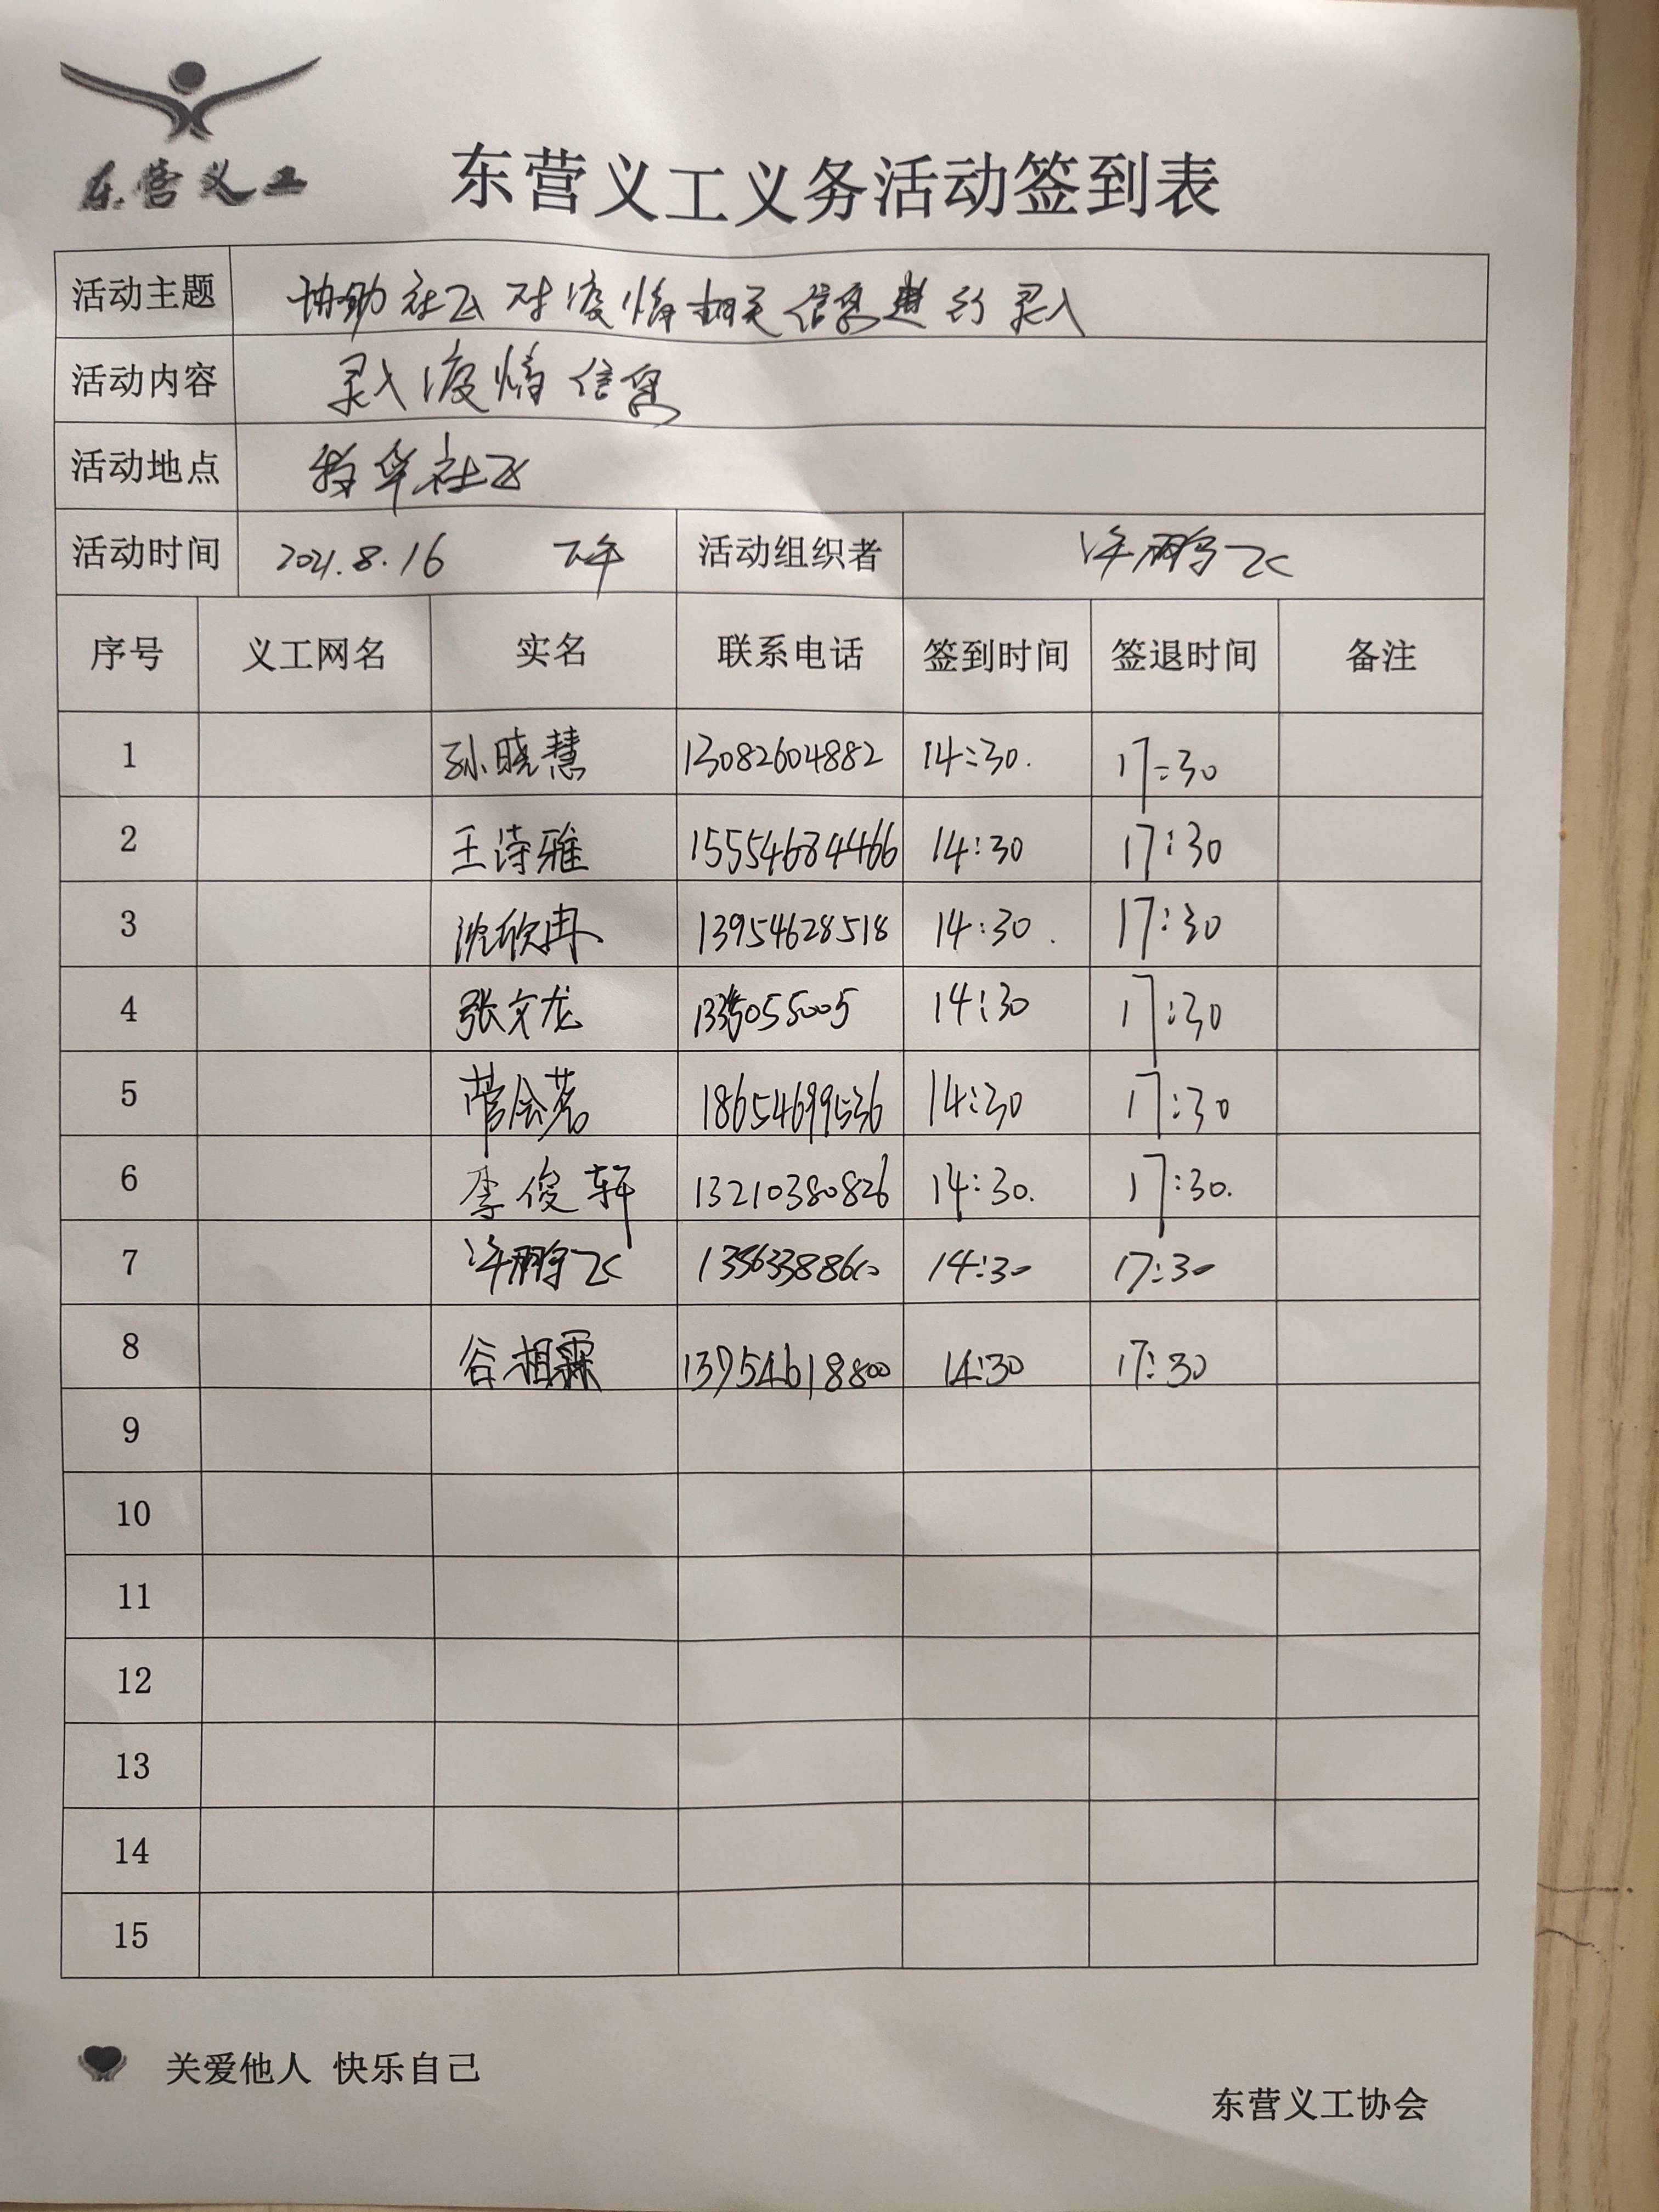 东营义工
东营义工义务活动签到表
活动主题 协助社区对疫情相关信息进行录入
活动内容 录入疫情信息
活动地点 华社区
活动时间 2021.8.16 下午 活动组织者 许鹏飞
序号 义工网名 实名 联系电话 签到时间 签退时间 备注
1 孙晓慧 13082604882 14:30. 17:30
2 王诗雅 15554684466 14:30 17:30
3 沈欣冉 13954628518 14:30. 17:30
4 张文龙 14:30 17:30
5 18654699536 14:30 17:30
6 李俊轩 13210380826 14:30. 17:30.
7 许鹏飞 14:30 17:30
8 谷相霖 13954618800 14:30 17:30
9
10
11
12
13
14
15
关爱他人 快乐自己
东营义工协会